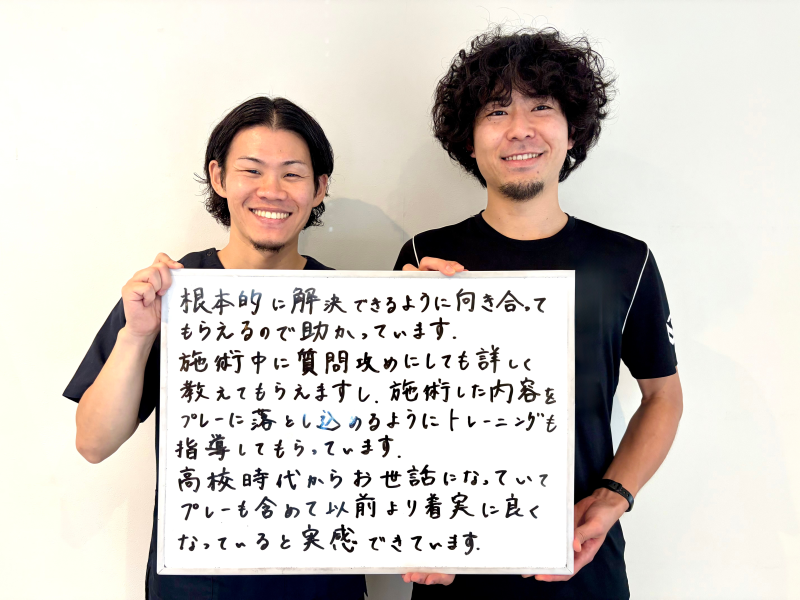 根本的に解決できるように向き合って
もらえるので助かっています.
施術中に質問攻めにしても詳しく
教えてもらえますし、施術した内容を
プレーに落とし込めるようにトレーニングも
指導してもらっています.
高校時代からお世話になっていて
プレーも含めて以前より着実に良く
なっていると実感できています.